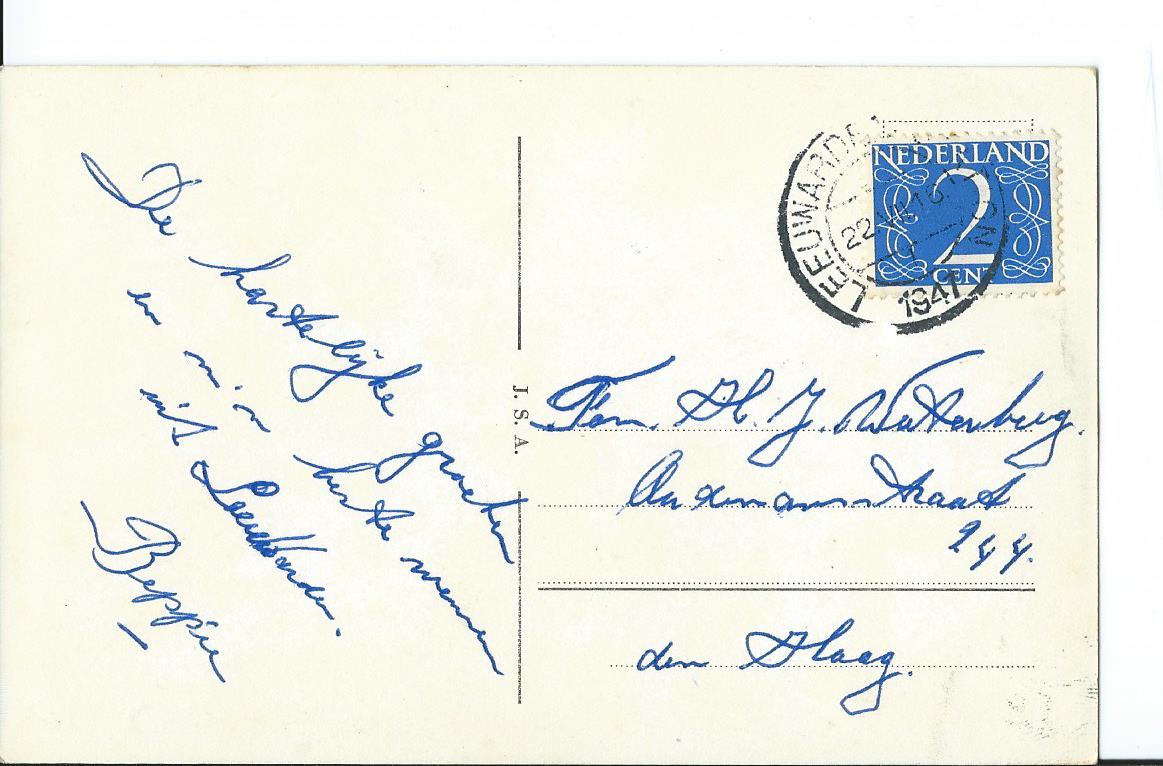 De hartelijke groeten
en m'n beste wensen
uit Leeuwarden.
Beppie
J. S. A.
LEEUWARDEN
1947
NEDERLAND
2
CENT
Fam. H. J. Waterburg.
Andemanstraat
244.
den Haag.